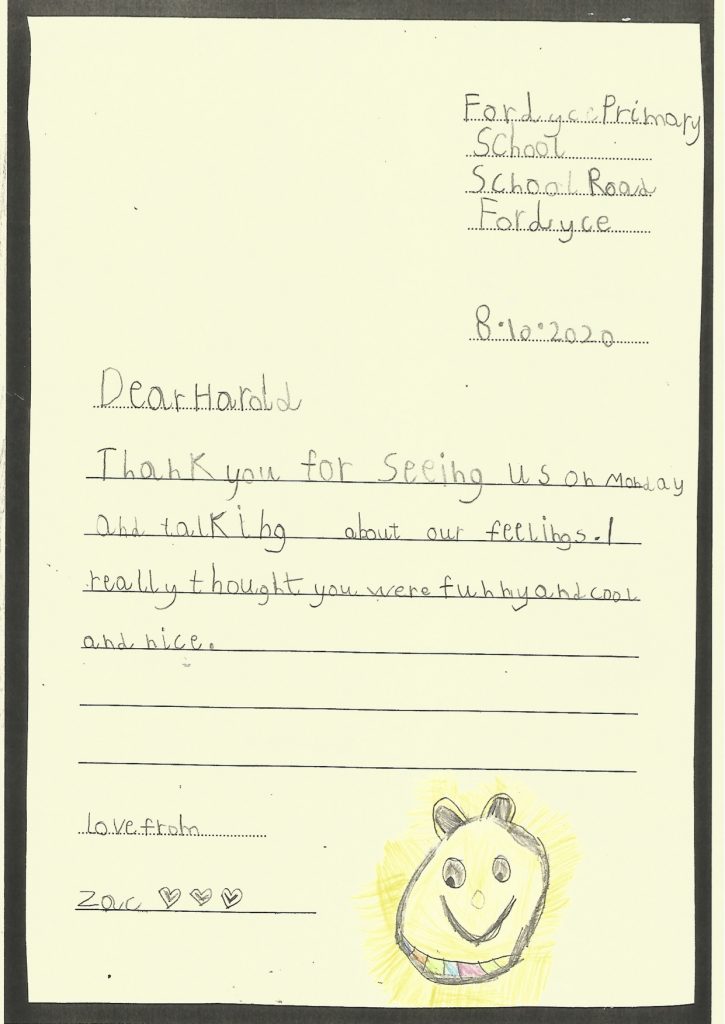 Fordyce Primary
School
School Road
Fordyce
8.10.2020
Dear Harold
Thank you for seeing us on Monday
and talking about our feelings. I
really thought you were funny and cool
and nice.
love from
Zac ♡♡♡